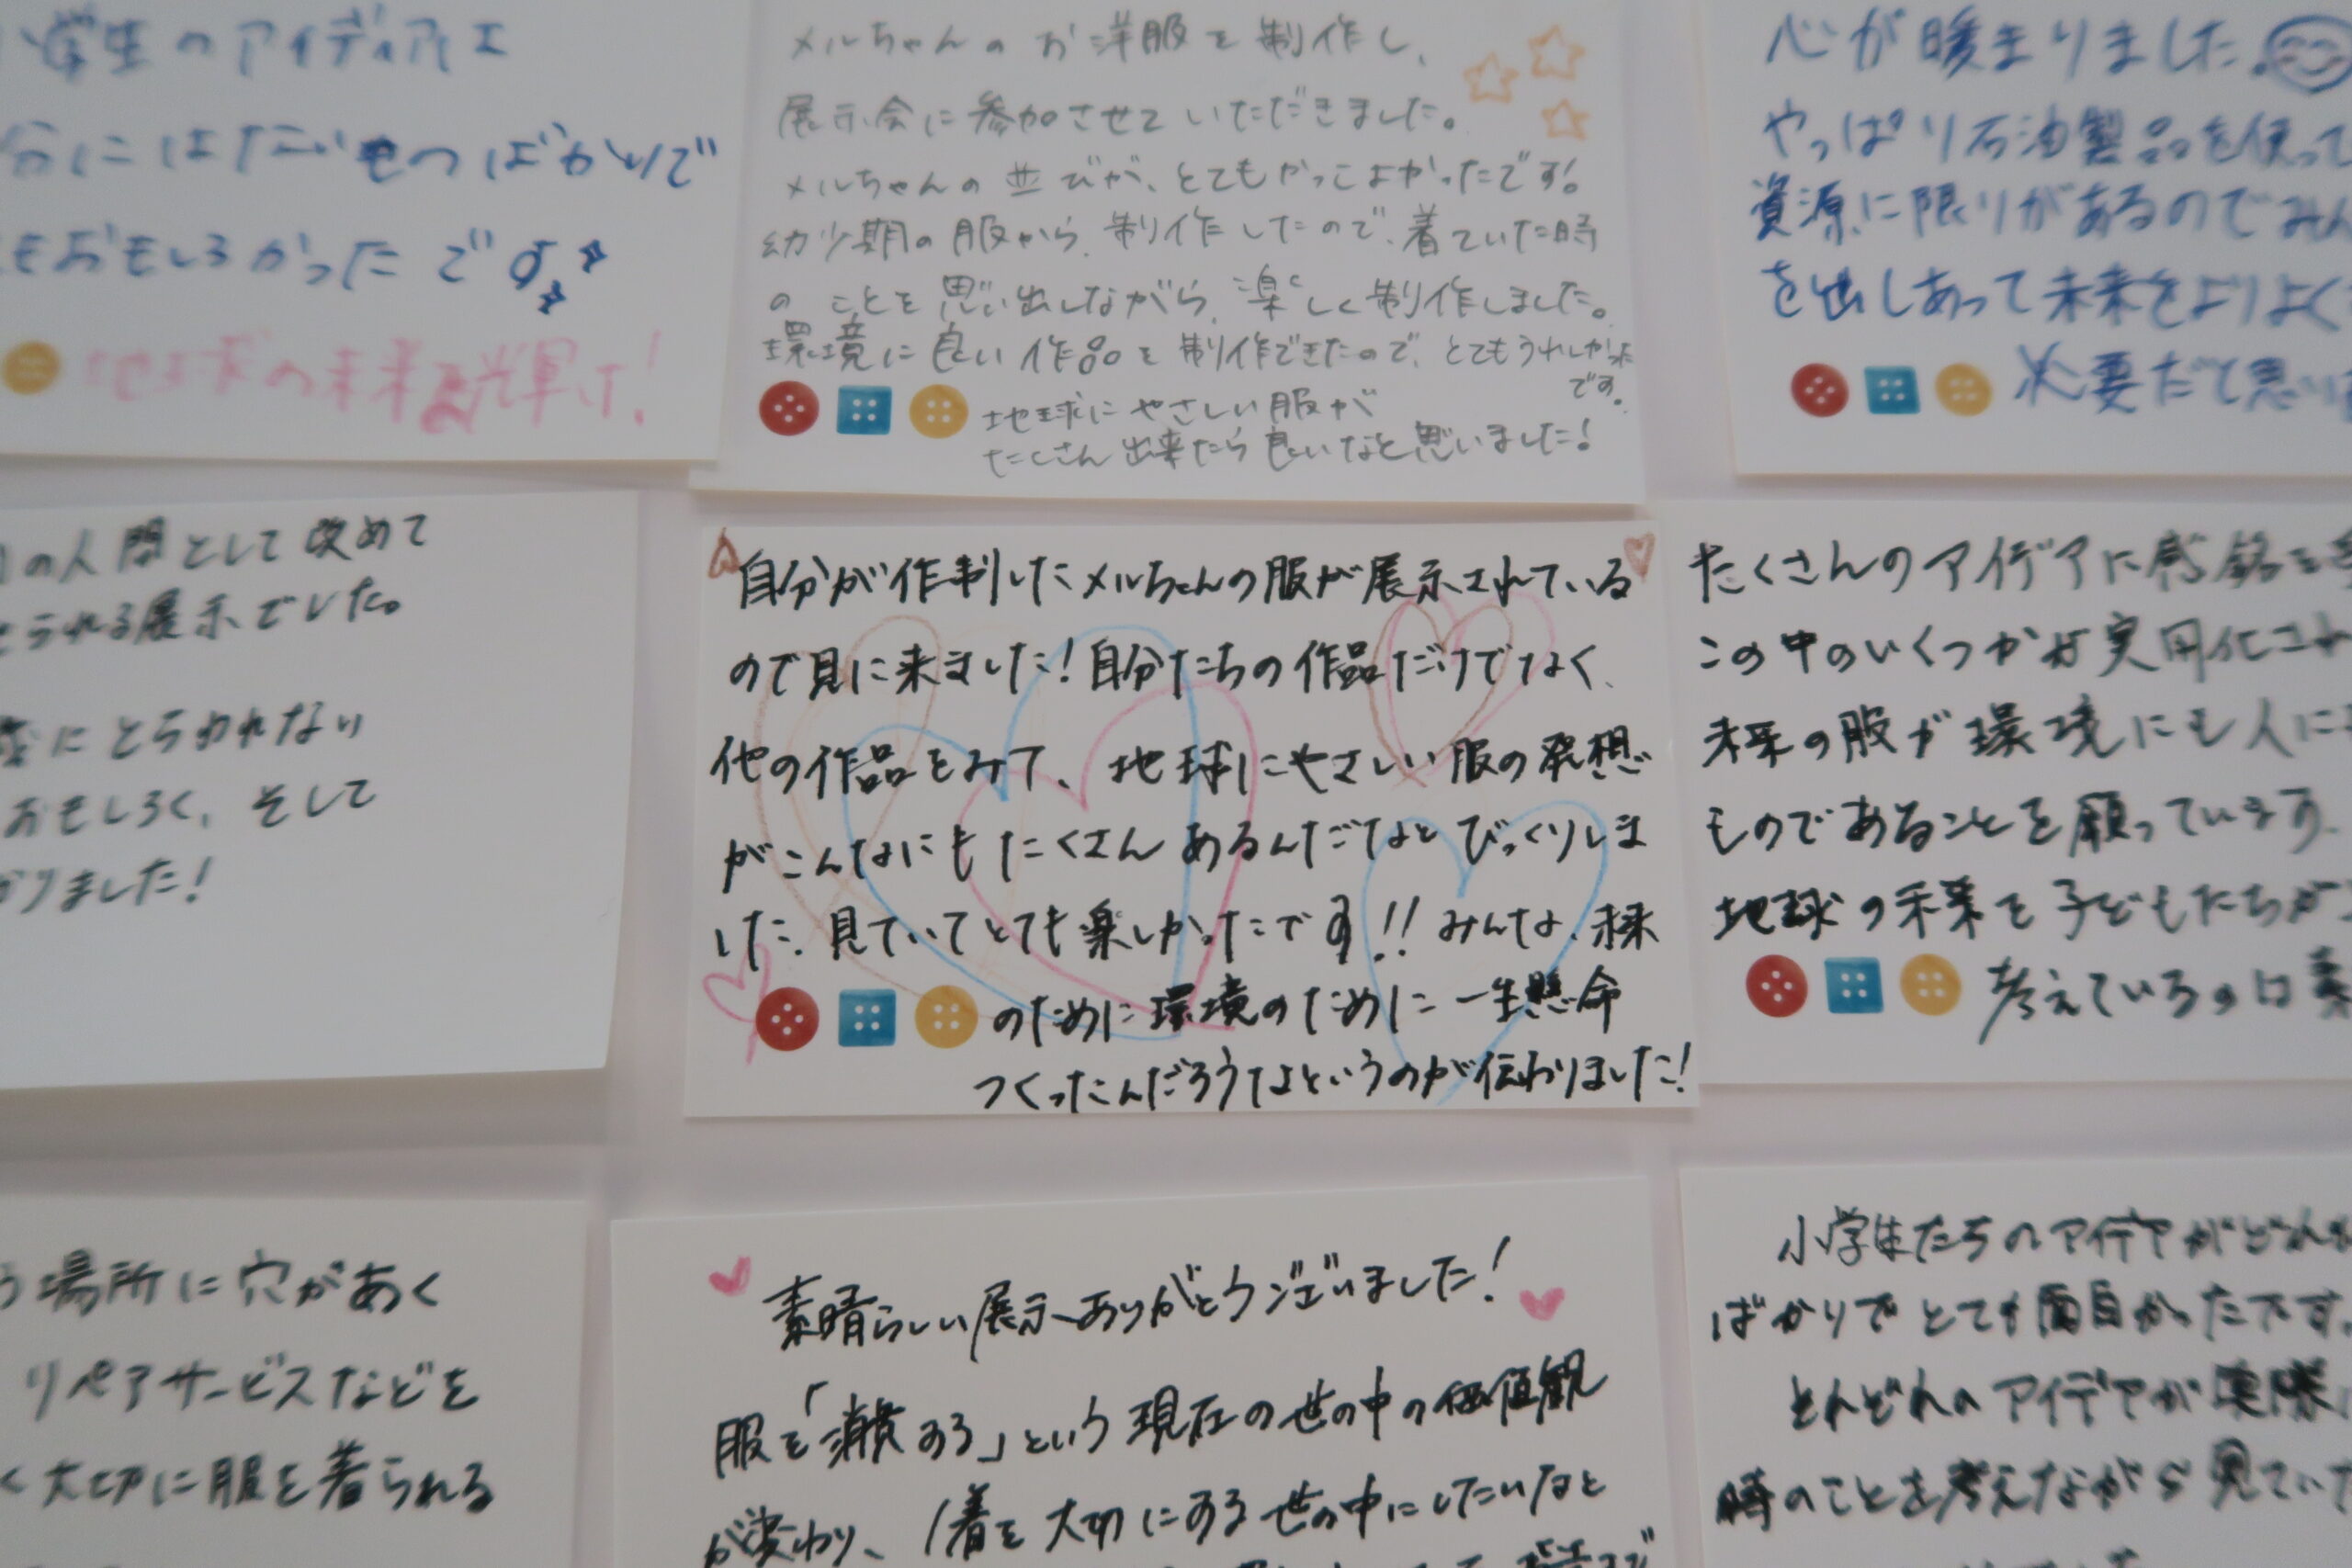 小学生のアイディアエ
メルちゃんのお洋服を制作し、
展示会に参加させていただきました。
メルちゃんの並びが、とてもかっこよかったです!
幼少期の服から、制作したので、着ていた時
のことを思い出しながら、楽しく制作しました。
環境に良い作品を制作できたので、とてもうれしかった
です。
地球にやさしい服が
たくさん出来たら良いなと思いました!
心が暖まりました。
やっぱり石油製品を使って
資源に限りがあるのでみん
を出しあって未来をよりよく
必要だと思い
ばかりで
もおもしろかったです
地球の未来を輝け!
の人間として改めて
られる展示でした。
にとらわれない
おもしろく、そして
りました!
自分が作制したメルちゃんの服が展示されている
ので見に来ました!自分たちの作品だけでなく、
他の作品をみて、地球にやさしい服の発想
がこんなにもたくさんあるんだなとびっくりしま
した。見ていてとても楽しかったです!!みんな、未来
のために環境のために一生懸命
つくったんだろうなというのが伝わりました!
たくさんのアイデアに感銘を
この中のいくつかは実用化され
未来の服が環境にも人に
ものであることを願っています。
地球の未来を子どもたちが
考えているのは素
場所に穴があく
リペアサービスなどを
大切に服を着られる
素晴らしい展示ありがとうございました!
服を「消費する」という現在の世の中の価値観
が変わり、1着を大切にする世の中にしたいなと
小学生たちのアイデアがどれも
ばかりでとても面白かったです。
それぞれのアイデアが実際
時のことを考えながら見てい